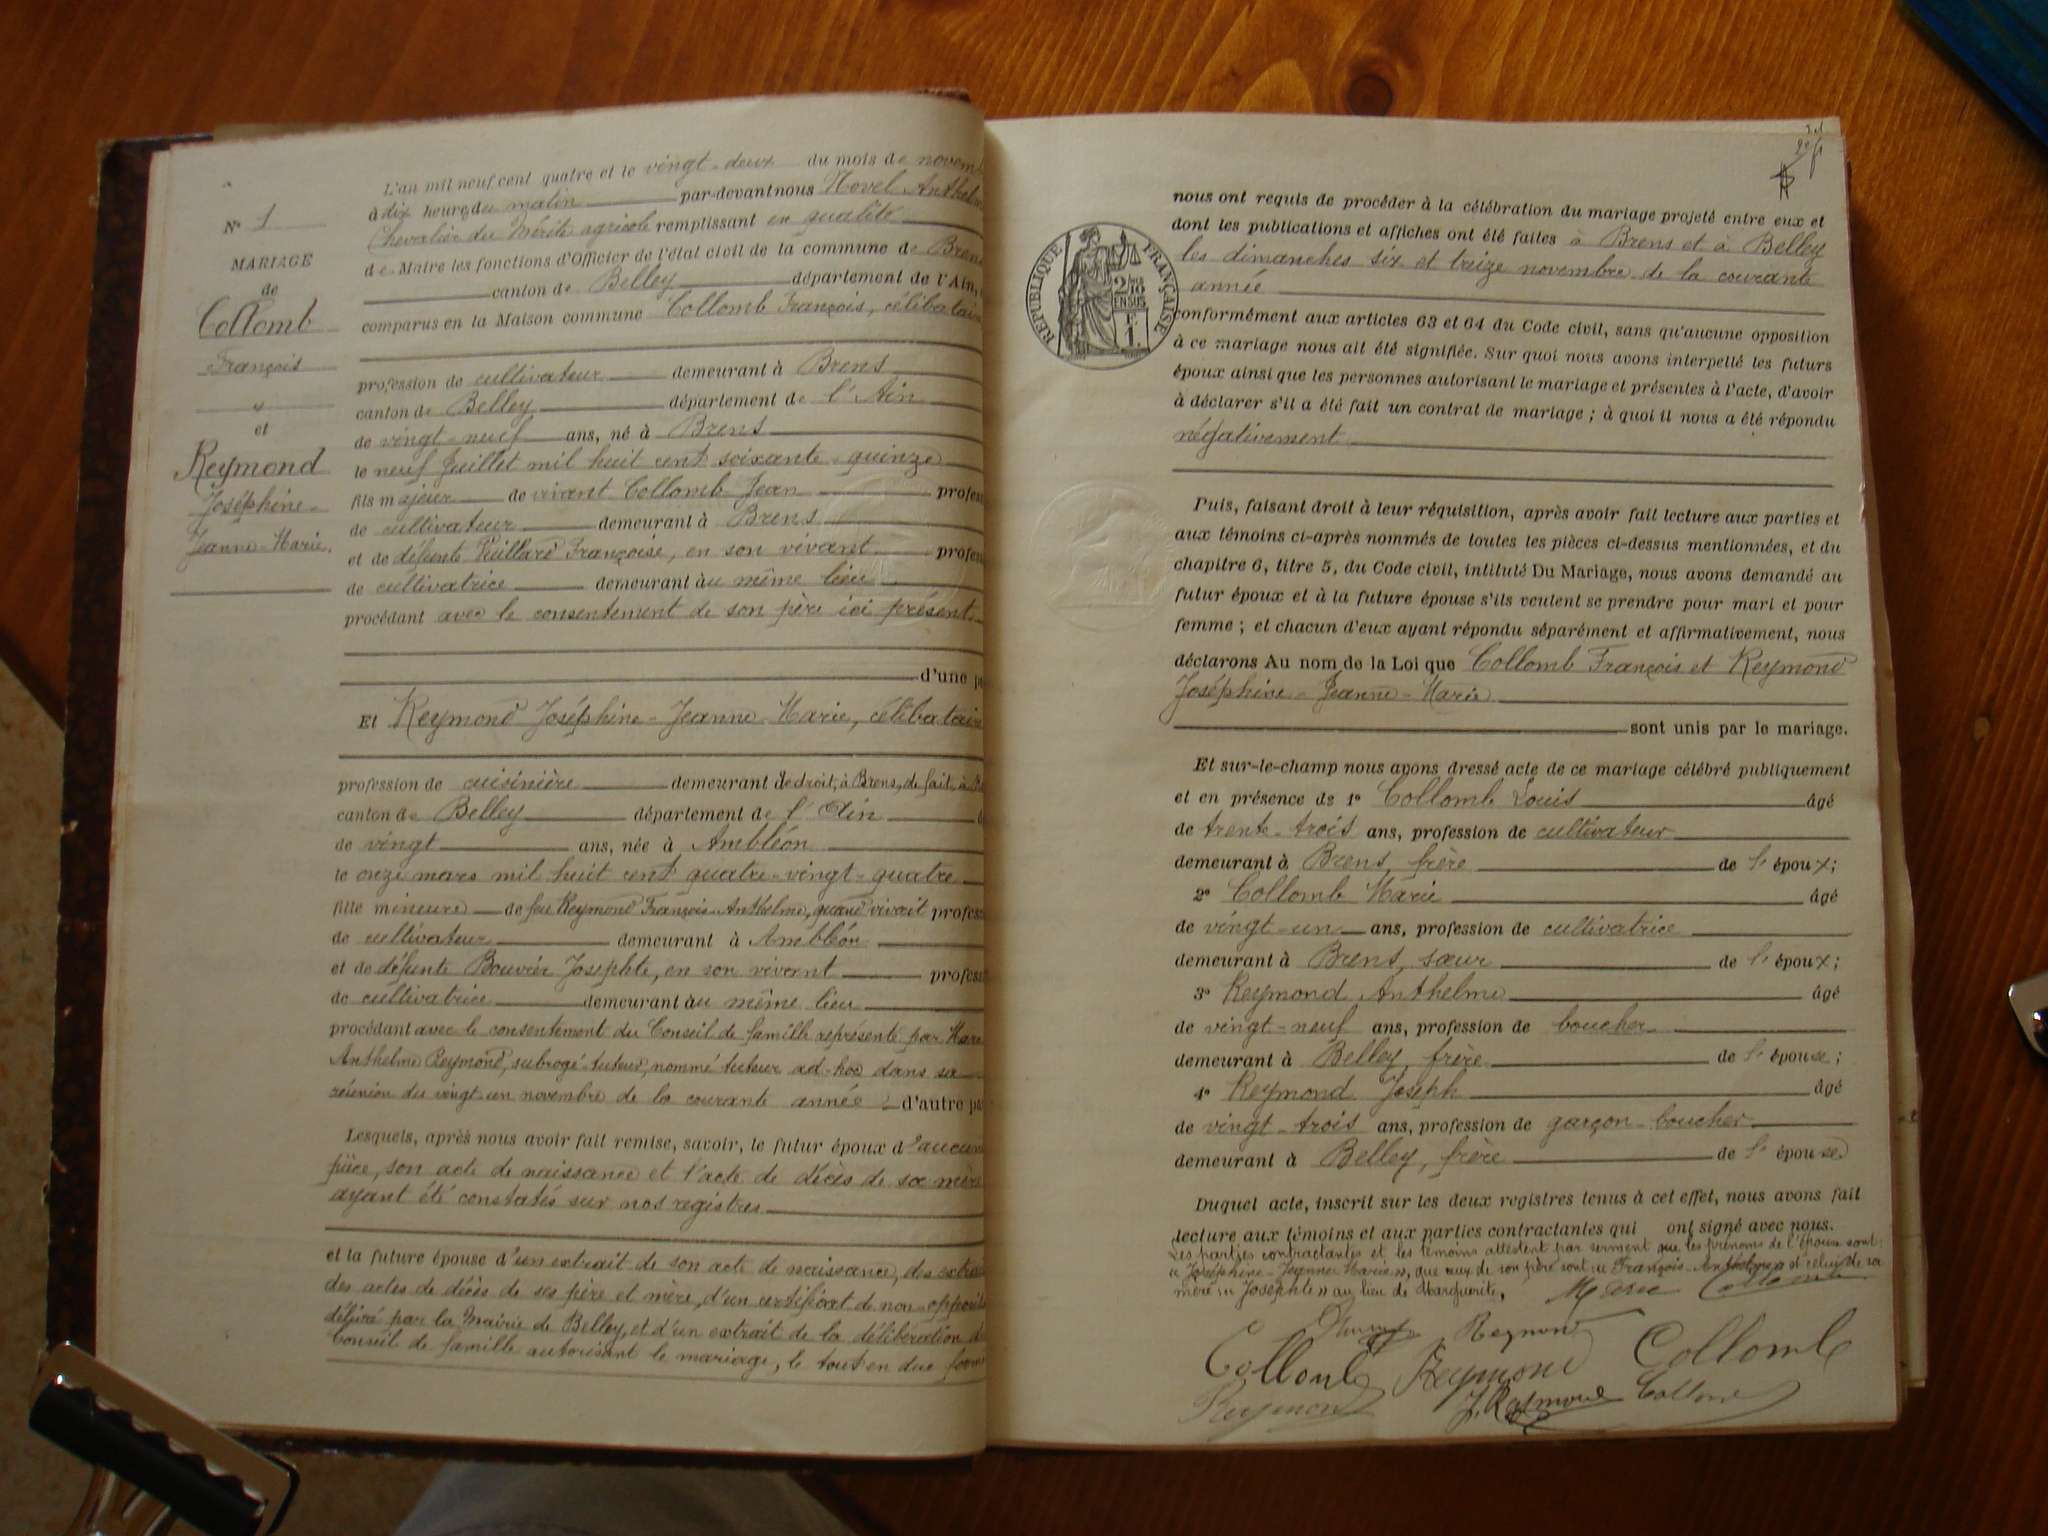 N° 1
MARIAGE
de
Collomb
François
et
Reymond
Joséphine-
Jeanne-Marie.
L'an mil neuf cent quatre et le vingt-deux du mois de novem
à dix heures du matin par-devant nous Hovel Anthel
Chevalier du Mérite agricole remplissant en qualité
de Maire les fonctions d'Officier de l'état civil de la commune de Bren
canton de Belley département de l'Ain,
comparus en la Maison commune Collomb François, célibatair
profession de cultivateur demeurant à Brens
canton de Belley département de l'Ain
de vingt-neuf ans, né à Brens
le neuf Juillet mil huit cent soixante-quinze
fils majeur de vivant Collomb Jean profess
de cultivateur demeurant à Brens
et de défunte Vuillard Françoise, en son vivant profess
de cultivatrice demeurant au même lieu
procédant avec le consentement de son père ici présent
d'une pa
Et Reymond Joséphine-Jeanne-Marie, célibataire
profession de cuisinière demeurant de droit, à Brens, de fait, à
canton de Belley département de l'Ain
de vingt ans, née à Ambléon
le onze mars mil huit cent quatre-vingt-quatre
fille mineure de feu Reymond François-Anthelme, quand vivait profess
de cultivateur demeurant à Ambléon
et de défunte Bouvier Josephte, en son vivant profess
de cultivatrice demeurant au même lieu
procédant avec le consentement du Conseil de famille représenté par
Anthelme Reymond, subrogé-tuteur, nommé tuteur ad-hoc dans sa
réunion du vingt-un novembre de la courante année d'autre pa
Lesquels, après nous avoir fait remise, savoir, le futur époux d'aucune
pièce, son acte de naissance et l'acte de décès de sa mère
ayant été constatés sur nos registres
et la future épouse d'un extrait de son acte de naissance, des extraits
des actes de décès de ses père et mère, d'un certificat de non-opposit
délivré par la Mairie de Belley, et d'un extrait de la délibération d
Conseil de famille autorisant le mariage, le tout en due forme
RÉPUBLIQUE FRANÇAISE
nous ont requis de procéder à la célébration du mariage projeté entre eux et
dont les publications et affiches ont été faites à Brens et à Belley
les dimanches six et treize novembre de la courante
année
conformément aux articles 63 et 64 du Code civil, sans qu'aucune opposition
à ce mariage nous ait été signifiée. Sur quoi nous avons interpellé les futurs
époux ainsi que les personnes autorisant le mariage et présentes à l'acte, d'avoir
à déclarer s'il a été fait un contrat de mariage ; à quoi il nous a été répondu
négativement
Puis, faisant droit à leur réquisition, après avoir fait lecture aux parties et
aux témoins ci-après nommés de toutes les pièces ci-dessus mentionnées, et du
chapitre 6, titre 5, du Code civil, intitulé Du Mariage, nous avons demandé au
futur époux et à la future épouse s'ils veulent se prendre pour mari et pour
femme ; et chacun d'eux ayant répondu séparément et affirmativement, nous
déclarons Au nom de la Loi que Collomb François et Reymond
Joséphine-Jeanne-Marie
sont unis par le mariage.
Et sur-le-champ nous avons dressé acte de ce mariage célébré publiquement
et en présence de 1° Collomb Louis âgé
de trente-trois ans, profession de cultivateur
demeurant à Brens, frère de l'époux;
2° Collomb Marie âgé
de vingt-un ans, profession de cultivatrice
demeurant à Brens, sœur de l'époux;
3° Reymond Anthelme âgé
de vingt-neuf ans, profession de boucher
demeurant à Belley, frère de l'épouse;
4° Reymond Joseph âgé
de vingt-trois ans, profession de garçon-boucher
demeurant à Belley, frère de l'épouse
Duquel acte, inscrit sur les deux registres tenus à cet effet, nous avons fait
lecture aux témoins et aux parties contractantes qui ont signé avec nous.
Les parties contractantes et les témoins attestent par serment que les prénoms de l'épouse sont
« Joséphine-Jeanne-Marie », que ceux de son père sont « François-Anthelme » et celui de sa
mère « Josephte » au lieu de Marguerite.
Reymond
Collomb Reymond Collomb
Reymond J. Reymond Collomb